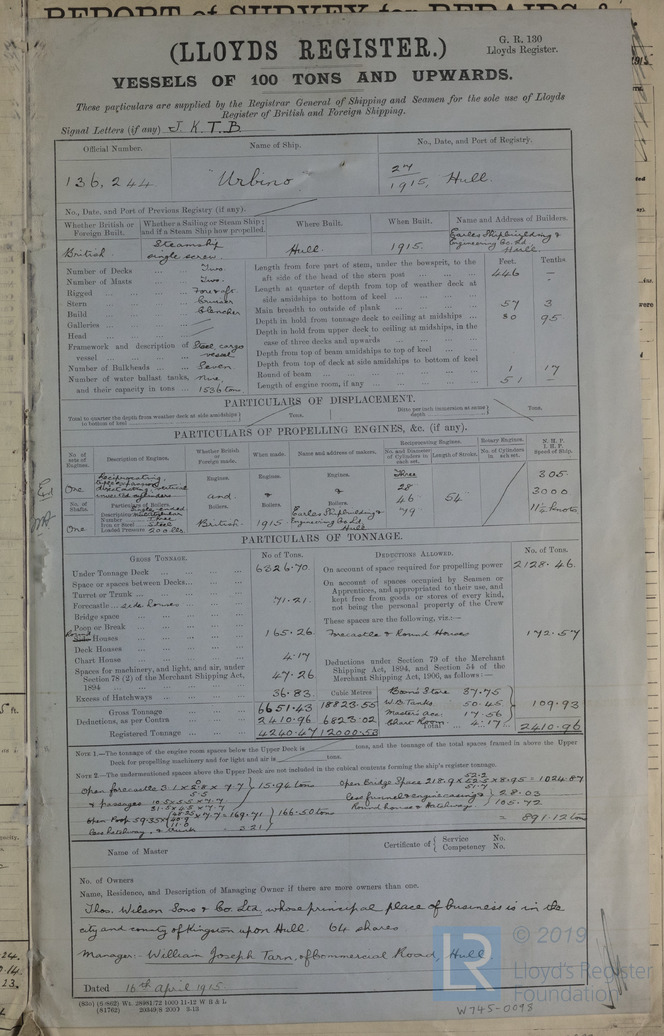 REPORT of SURVEY for REPAIRS, &
(LLOYDS REGISTER.)
G. R. 130
Lloyds Register.
VESSELS OF 100 TONS AND UPWARDS.
These particulars are supplied by the Registrar General of Shipping and Seamen for the sole use of Lloyds
Register of British and Foreign Shipping.
Signal Letters (if any) J. K. T. B.
Official Number. Name of Ship. No., Date, and Port of Registry.
136,244 "Urbino" 27/1915, Hull.
No., Date, and Port of Previous Registry (if any).
Whether British or Foreign Built. Whether a Sailing or Steam Ship; and if a Steam Ship how propelled. Where Built. When Built. Name and Address of Builders.
British. Steamship single screw. Hull. 1915. Earles Shipbuilding & Engineering Co. Ld Hull
Feet. Tenths
Number of Decks ... Two.
Number of Masts ... Two.
Rigged ... Fore & aft.
Stern ... Cruiser
Build ... Clencher
Galleries ...
Head ...
Framework and description of vessel ... Steel, cargo vessel
Number of Bulkheads ... Seven
Number of water ballast tanks, and their capacity in tons ... Nine, 1536 tons.
Length from fore part of stem, under the bowsprit, to the aft side of the head of the stern post ... 446 —
Length at quarter of depth from top of weather deck at side amidships to bottom of keel ...
Main breadth to outside of plank ... 57 3
Depth in hold from tonnage deck to ceiling at midships ... 30 95
Depth in hold from upper deck to ceiling at midships, in the case of three decks and upwards ...
Depth from top of beam amidships to top of keel ...
Depth from top of deck at side amidships to bottom of keel
Round of beam ... 1 17
Length of engine room, if any ... 51 —
PARTICULARS OF DISPLACEMENT.
Total to quarter the depth from weather deck at side amidships to bottom of keel Tons. Ditto per inch immersion at same depth Tons.
PARTICULARS OF PROPELLING ENGINES, &c. (if any).
No. of sets of Engines. Description of Engines. Whether British or Foreign made. When made. Name and address of makers. Reciprocating Engines. Rotary Engines. N. H. P. I. H. P. Speed of Ship.
No. and Diameter of Cylinders in each set. Length of Stroke. No. of Cylinders in each set.
One Reciprocating, triple expansion direct acting vertical inverted cylinders Engines. Engines. Engines. Three 28 46 79 54" 305
3000
11½ knots
No. of Shafts. Particulars of Boilers. Boilers. Boilers. Boilers.
One Description Number Three Iron or Steel Steel Loaded Pressure 200 lbs. British. 1915 Earles Shipbuilding & Engineering Co. Ld Hull
PARTICULARS OF TONNAGE.
GROSS TONNAGE. No. of Tons. DEDUCTIONS ALLOWED. No. of Tons.
Under Tonnage Deck ... 6326.70
Space or spaces between Decks...
Turret or Trunk ...
Forecastle .. side houses ... 71.21
Bridge space
Poop or Break
Round Side Houses ... 165.26
Deck Houses
Chart House ... 4.17
Spaces for machinery, and light, and air, under Section 78 (2) of the Merchant Shipping Act, 1894 ... 47.26
Excess of Hatchways ... 36.83
Cubic Metres
Gross Tonnage 6651.43 18823.55
Deductions, as per Contra ... 2410.96 6823.02
Registered Tonnage ... 4240.47 12000.53
On account of space required for propelling power 2128.46
On account of spaces occupied by Seamen or Apprentices, and appropriated to their use, and kept free from goods or stores of every kind, not being the personal property of the Crew
These spaces are the following, viz.:—
Forecastle & Round Houses 172.57
Deductions under Section 79 of the Merchant Shipping Act, 1894, and Section 54 of the Merchant Shipping Act, 1906, as follows:—
Bosn's Store 37.75
W.B. Tanks 50.45
Masters acc. 17.56
Chart Room 4.17
109.93
Total 2410.96
NOTE 1.—The tonnage of the engine room spaces below the Upper Deck is tons, and the tonnage of the total spaces framed in above the Upper
Deck for propelling machinery and for light and air is tons.
NOTE 2.—The undermentioned spaces above the Upper Deck are not included in the cubical contents forming the ship's register tonnage.
Open forecastle 3.1 x 2.8 x 7.7 } 15.94 tons
& passages
Open Poop 59.35 x 7.7 = 169.71 } 166.50 tons
Less hatchway, & trunk 3.21
Open Bridge Space 218.9 x 52.5 x 8.95 = 1024.87
less funnel & engine casing } 28.03
Round house & Hatchways } 105.72
= 891.12 tons
Name of Master Certificate of { Service No. Competency No.
No. of Owners
Name, Residence, and Description of Managing Owner if there are more owners than one.
Thos. Wilson Sons & Co. Ltd, whose principal place of business is in the
city and county of Kingston upon Hull. 64 shares
Manager:- William Joseph Tarn, of Commercial Road, Hull.
Dated 16th April 1915.
© 2019
LR
Lloyd's Register
Foundation
W745-0098